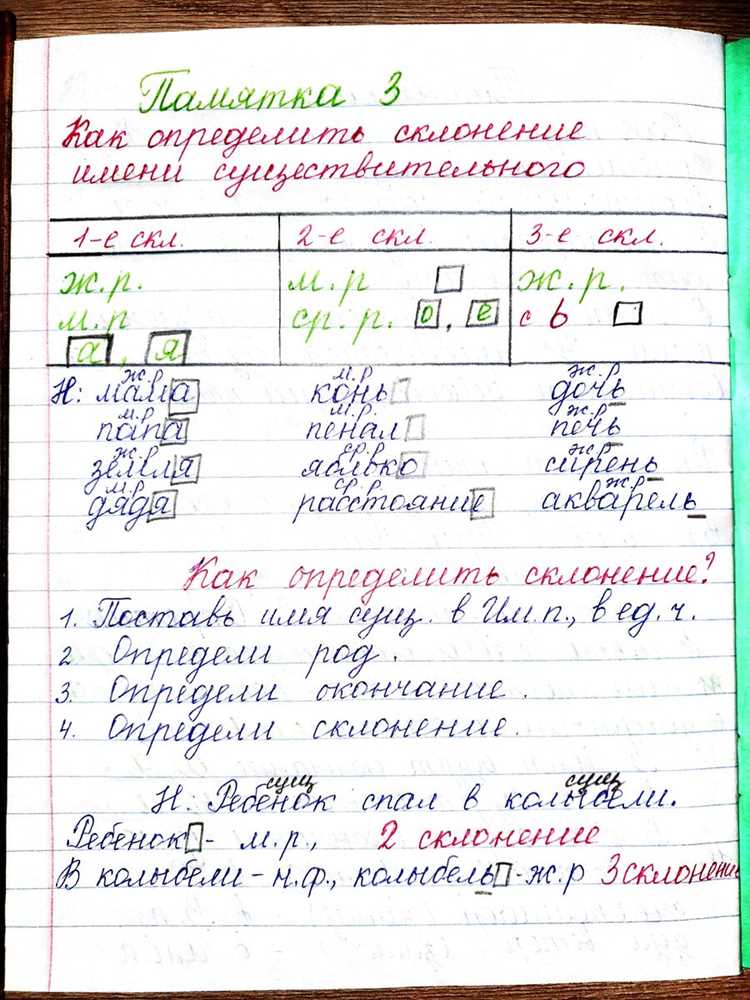 Памятка 3
Как определить склонение
имени существительного
1-е скл. 2-е скл. 3-е скл.
ж.р. м.р ж.р.
м.р ср.р. о, е с ь
а, я
ж.р м.р ж.р
Н: мама конь дочь
м.р м.р. ж.р
папа пенал печь
ж.р ср.р ж.р
земля яблоко сирень
м.р ср.р ж.р
дядя расстояние акварель
Как определить склонение?
1. Поставь имя сущ. в Им.п., в ед.ч.
2 Определи род.
3. Определи окончание.
4. Определи склонение.
сущ сущ
Н: Ребенок спал в колыбели.
Ребенок - м.р., 2 склонение
В колыбели - н.ф., колыбель - ж.р 3 склонение